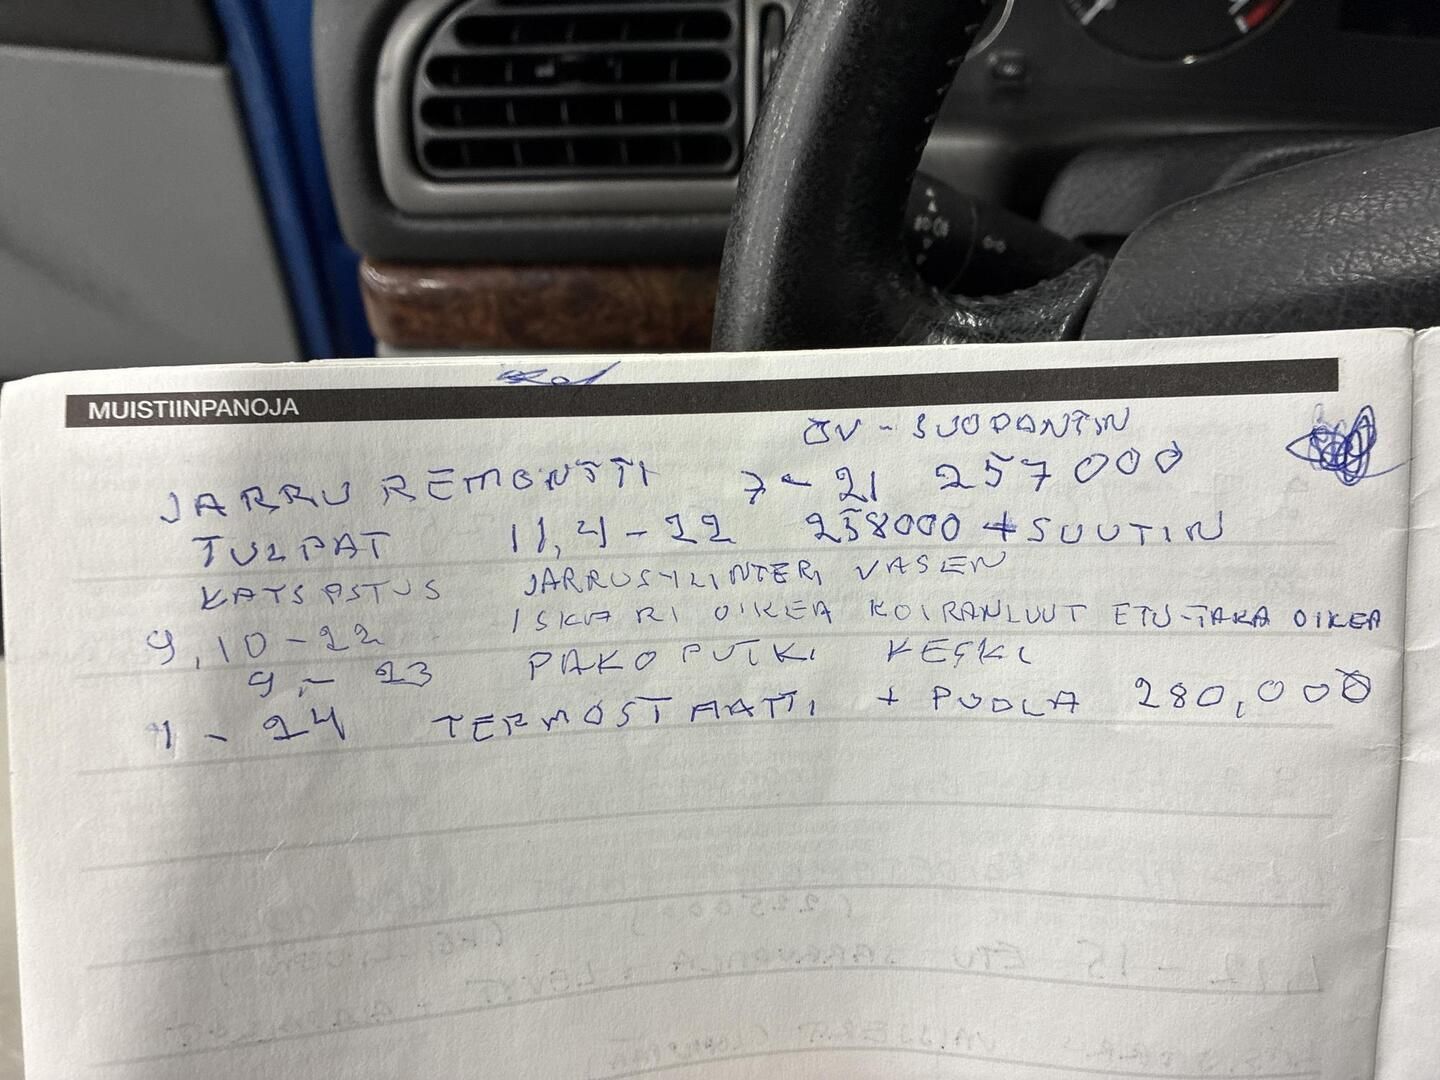 MUISTIINPANOJA
ÖV-SUODANTIN
JARRU REMONTTI 7-21 257000
TULPAT 11,4-22 258000 + SUUTIN
KATSASTUS JARRUSYLINTERI VASEN
9,10-22 ISKARI OIKEA KOIRANLUUT ETU-TAKA OIKEA
9,- 23 PAKOPUTKI KESKI
11-24 TERMOSTAATTI + PUOLA 280,000